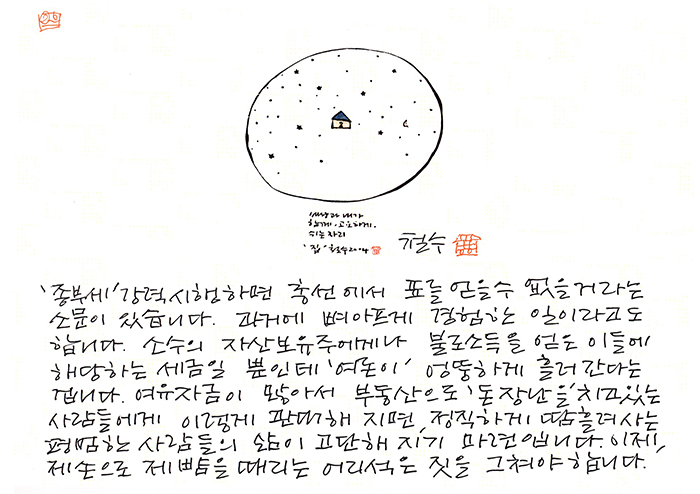 세상과 내가
함께. 고요하게.
쉬는 자리
'집' 철수 2004
철수
'종부세' 강력시행하면 총선에서 표를 얻을수 없을거라는
소문이 있습니다. 과거에 뼈아프게 경험한 일이라고도
합니다. 소수의 자산보유주에게나 불로소득을 얻은 이들에
해당하는 세금일 뿐인데 '여론이' 엉뚱하게 흘러간다는
겁니다. 여유자금이 많아서 부동산으로 '돈장난을' 치고있는
사람들에게 이렇게 관대해 지면, 정직하게 땀흘려사는
평범한 사람들의 삶이 고단해 지기 마련입니다. 이제,
제손으로 제뺨을 때리는 어리석은 짓을 그쳐야 합니다.